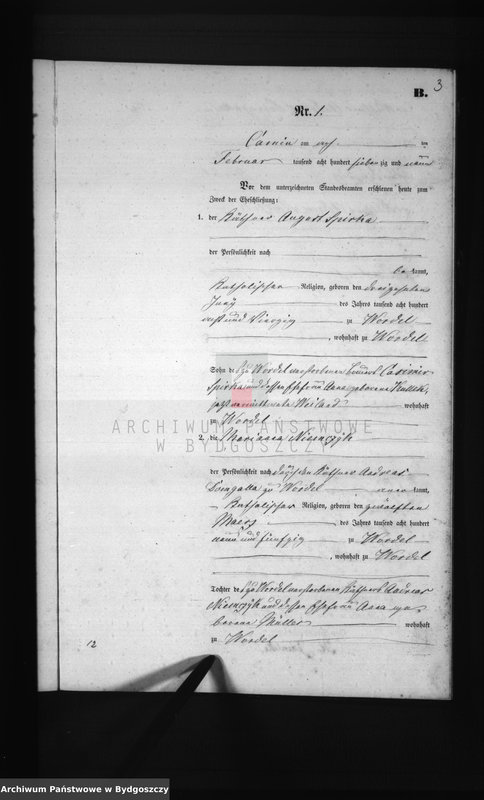 B. 3
Nr. 1.
Camin am
Februar tausend acht hundert siebenzig und neun
Vor dem unterzeichneten Standesbeamten erschienen heute zum
Zweck der Eheschließung:
1. der Käthner August Spirka
der Persönlichkeit nach
be kannt,
Katholischer Religion, geboren den dreizehnten
Juny des Jahres tausend acht hundert
und Vierzig zu Wordel
, wohnhaft zu Wordel
Sohn de s zu Wordel verstorbenen Casimir
Spirka und dessen Ehefrau Anna geborene
jetzt verwittwete wohnhaft
zu Wordel
2. die Marianna Niemczyk
der Persönlichkeit nach durch den Käthner Andreas
zu Wordel aner kannt,
Katholischer Religion, geboren den zwölften
Maerz des Jahres tausend acht hundert
neun und fünfzig zu Wordel
, wohnhaft zu Wordel
Tochter de s zu Wordel verstorbenen Käthners Andreas
Niemczyk und dessen Ehefrau Anna ge-
borene Müller wohnhaft
zu Wordel
12
ARCHIWUM PAŃSTWOWE
W BYDGOSZCZY
Archiwum Państwowe w Bydgoszczy